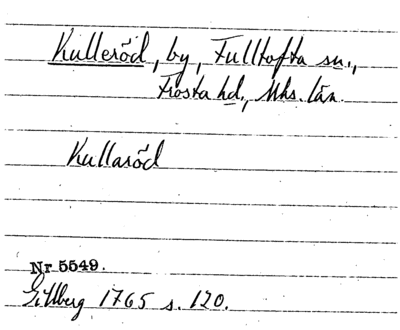 Kulleröd, by, Fulltofta sn.,
Frosta hd., Mhs. län.
Kullaröd
Nr 5549.
Gillberg 1765 s. 120.